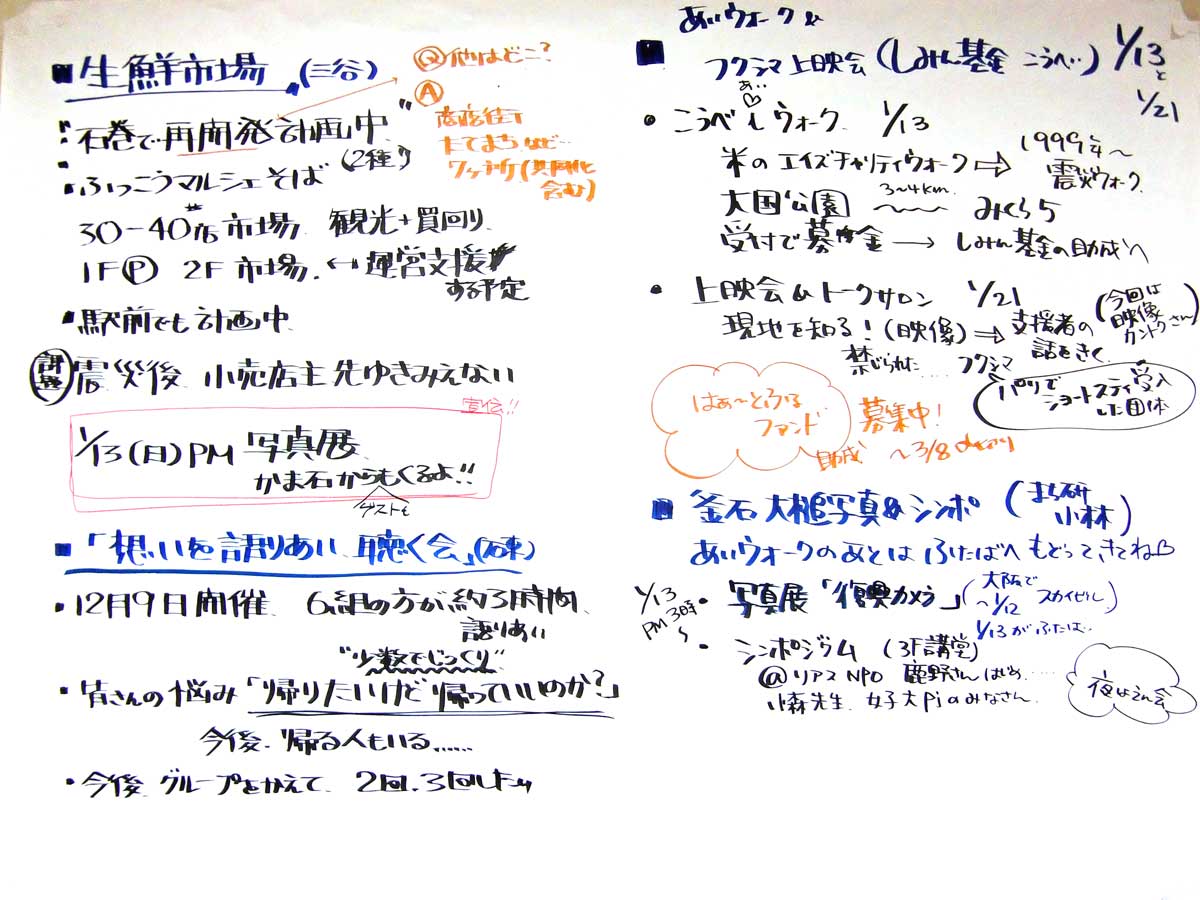 ■生鮮市場 (三谷)
Q 他はどこ?
A
商店街
たてまちなど…
ワンテナント(共同化
含む)
石巻で再開発計画中
ふっこうマルシェそば (2種)
30-40店市場 観光+買回り
1F P 2F 市場 ←運営支援
する予定
・駅前でも計画中
課題 震災後 小売店主先ゆきみえない
宣伝!!
1/13(日)PM 写真展
かま石からもくるよ!!
ゲストも
■「想いを語りあい、聴く会」
・12月9日開催 6組の方が約3時間
語りあい
"少数でじっくり"
・皆さんの悩み「帰りたいけど帰っていいのか?」
今後、帰る人もいる……
・今後、グループをかえて、2回、3回
あいウォーク&
■ フクシマ上映会(しみん基金 こうべ) 1/13と
1/21
・こうべ i ウォーク 1/13
米のエイズチャリティウォーク⇒ 1999年~
震災ウォーク
大国公園 3~4km. みくら5
受付で募金 → しみん基金の助成へ
・上映会&トークサロン 1/21
現地を知る!(映像)⇒支援者の
話をきく
(今回は
映像
カントクさん)
禁じられた… フクシマ
パリで
ショートステイ受入
した団体
はぁ~とふる
ファンド
募集中!
助成 ~3/8
■釜石大槌写真&シンポ (まち研
小林)
あいウォークのあとは ふたばへ もどってきてね
1/13
PM 3時
~
・写真展「復興カメラ」 (大阪で
~1/12 スカイビル)
1/13がふたば…
・シンポジウム (3F講堂)
@リアスNPO 鹿野さんはじめ……
小森先生、女子大Pjのみなさん
夜は会